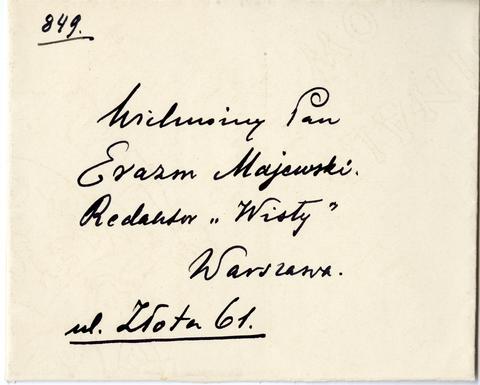 849.
Wielmożny Pan
Erazm Majewski.
Redaktor „Wisły”
Warszawa.
ul. Złota 61.